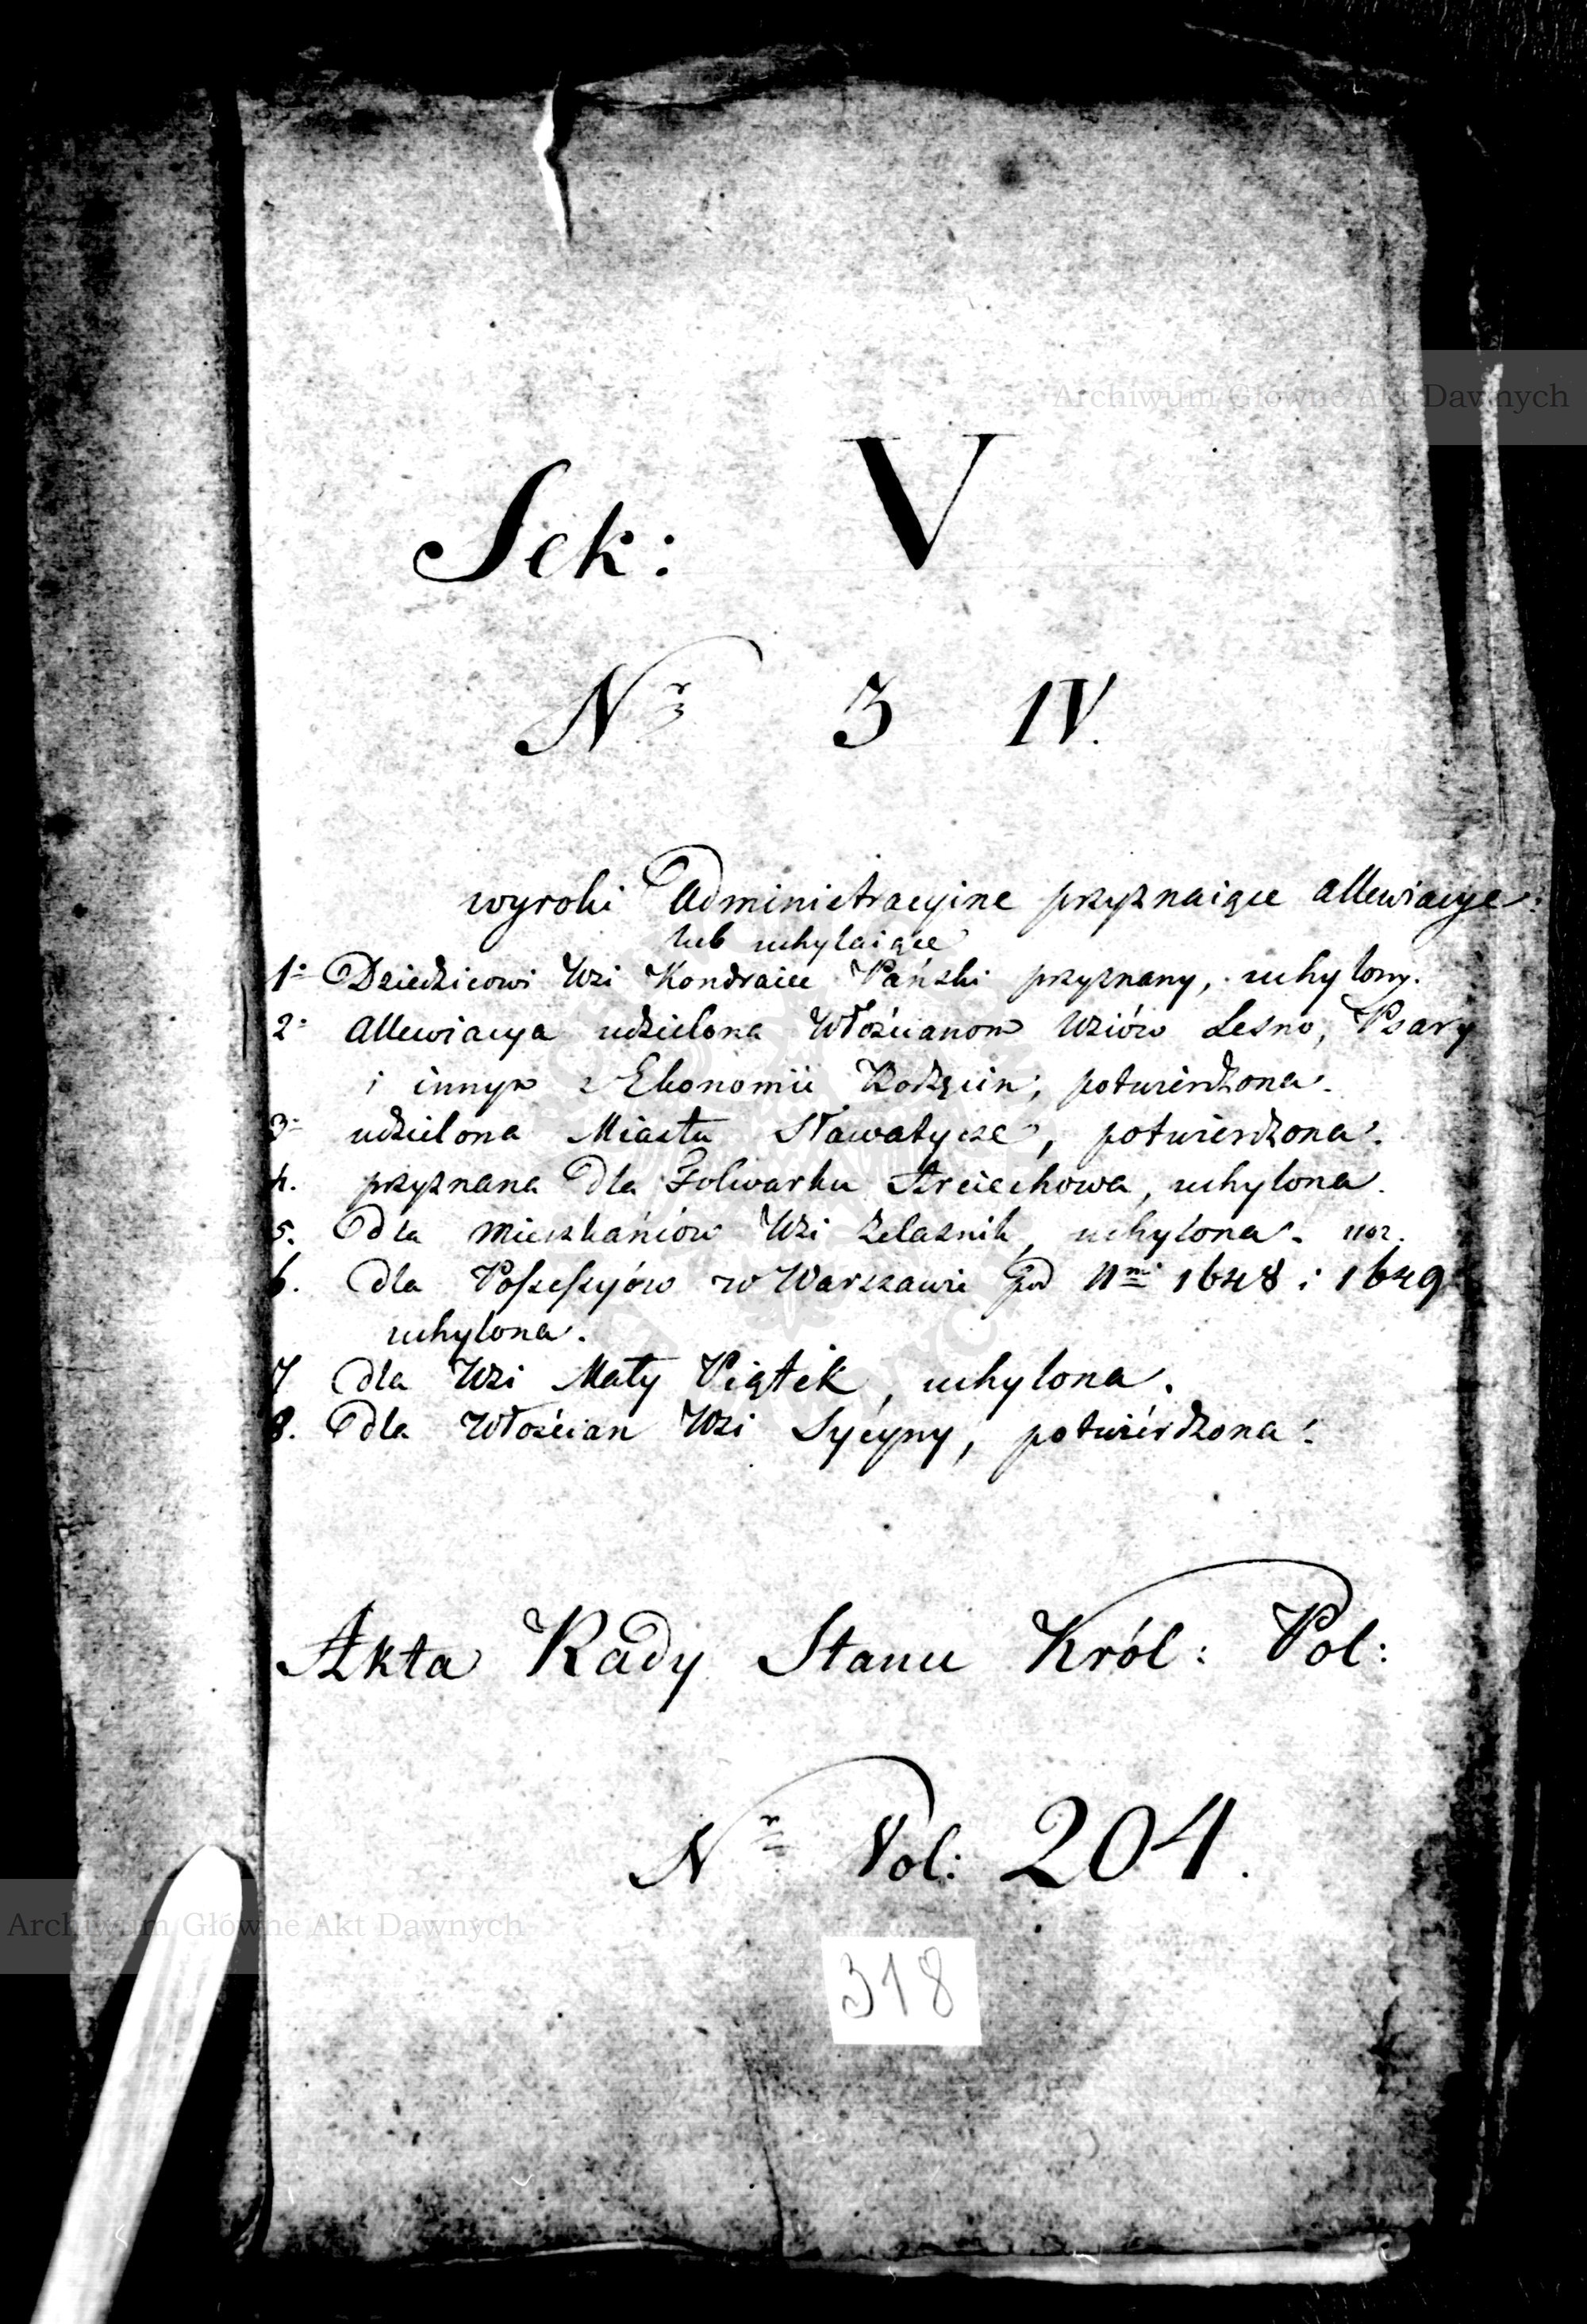 Archiwum Główne Akt Dawnych
Sek: V
Nr 3 IV.
wyroki Administracyine przyznaiące allewiacye
lub uchylaiące
1. Dziedzicowi Wsi Kondraiec Pański przyznany, uchylony.
2. Allewiacya udzielona Włościanom Wsiów Lesno, Psary
i innym z Ekonomii potwierdzona.
3. udzielona Miastu Sławatycze, potwierdzona.
4. przyznana dla Folwarku uchylona.
5. dla Mieszkańców Wsi Żelaznik, uchylona.
6. dla Possessyów w Warszawie pod Nmi 1648 i 1649
uchylona.
7 dla Wsi Mały Piątek, uchylona.
8. dla Włościan Wsi Syćyny, potwiérdzona.
Akta Rady Stanu Król: Pol:
Nr Vol: 204.
Archiwum Główne Akt Dawnych
318